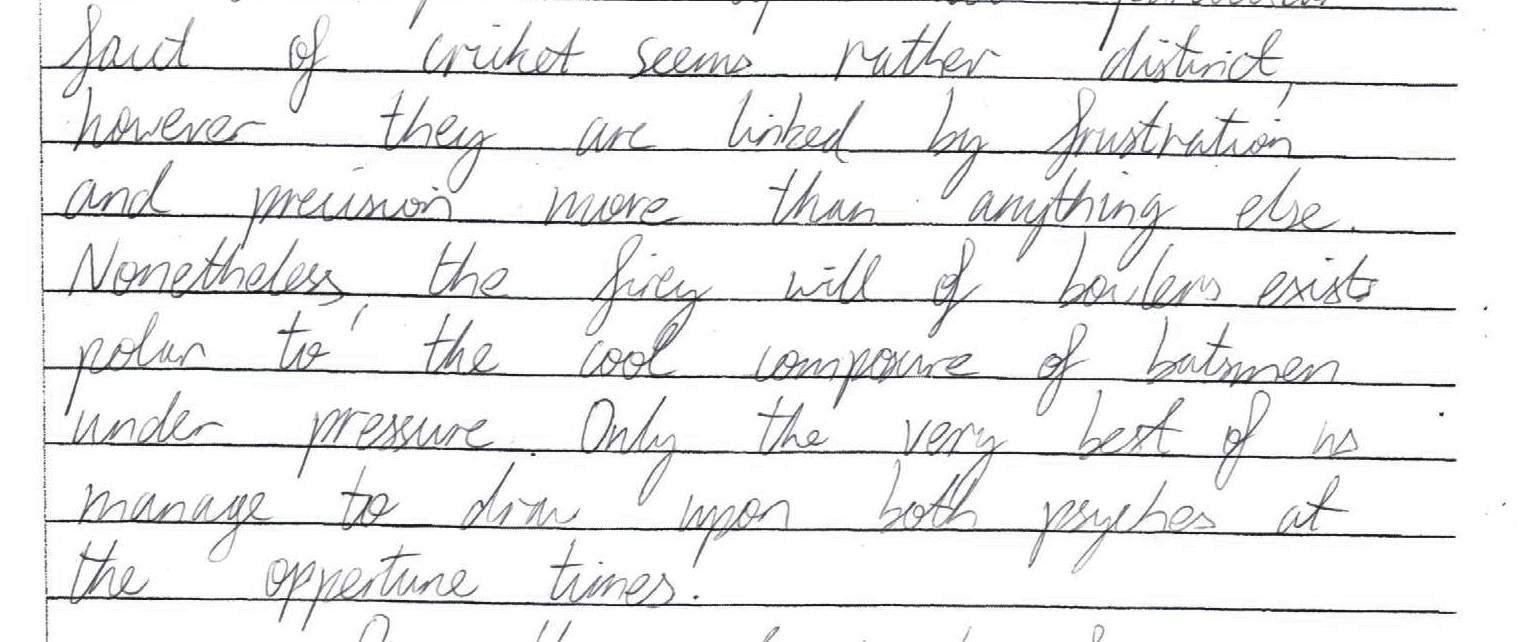 facet of cricket seems rather distinct,
however they are linked by frustration
and precision more than anything else.
Nonetheless, the firey will of bowlers exists
polar to the cool composure of batsmen
under pressure. Only the very best of us
manage to draw upon both psyches at
the oppertune times.